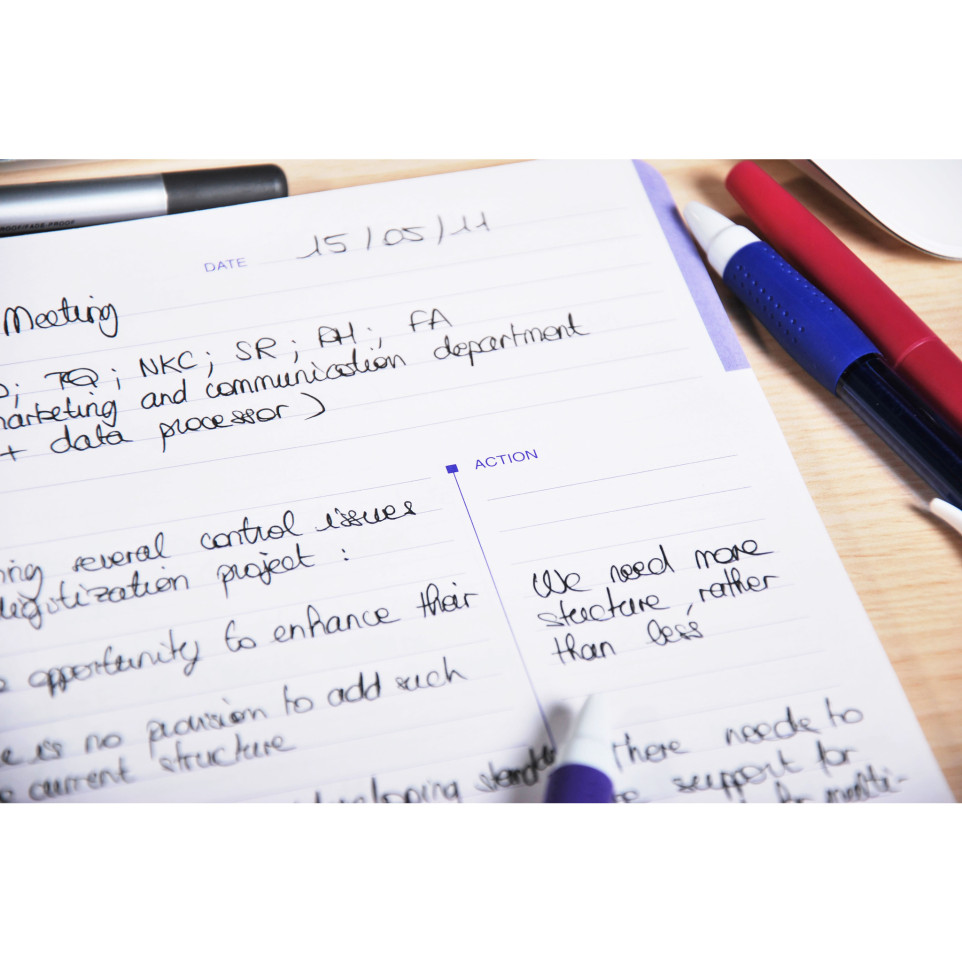 PROOF/FADE PROOF
DATE 15/05/11
Meeting
; TQ; NKC; SR; AH; FA
marketing and communication department
+ data processor)
ACTION
several control issues
project:
opportunity to enhance their
is no provision to add such
current structure
developing
We need more
structure, rather
than less
There needs to
support for